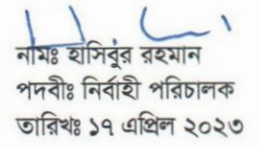 নামঃ হাসিবুর রহমান
পদবীঃ নির্বাহী পরিচালক
তারিখঃ ১৭ এপ্রিল ২০২৩